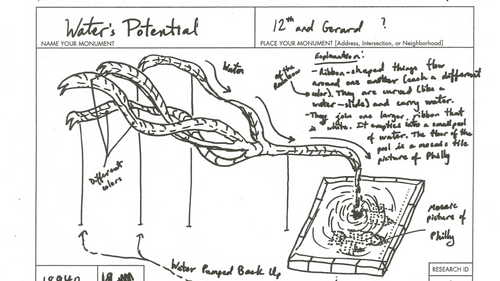 Water's Potential
NAME YOUR MONUMENT
12th and Gerard ?
PLACE YOUR MONUMENT [Address, Intersection, or Neighborhood]
Explanation:
- Ribbon-shaped things flow
around one another (each a different
color). They are curved (like a
of the Rainbow
water-slide) and carry water.
- They join one larger ribbon that
is white. It empties into a small pool
of water. The floor of the
pool is a mosaic tile
picture of Philly
Water
Different
colors
Mosaic
picture of
Philly
Water Pumped Back Up
RESEARCH ID